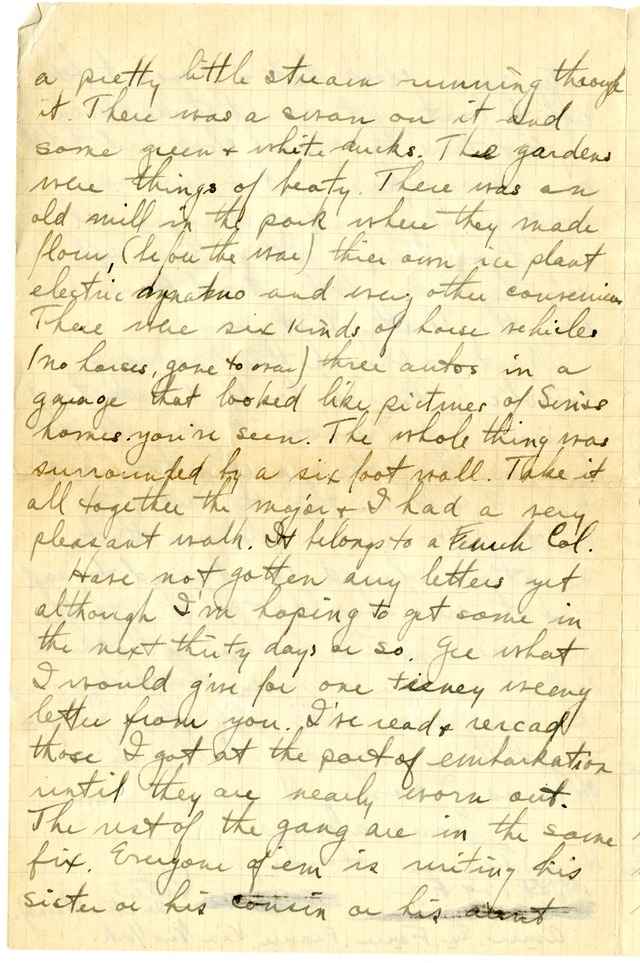 a pretty little stream running through
it. There was a swan on it and
some green + white ducks. The gardens
were things of beaty. There was an
old mill in the park where they made
flour, (before the war) thier own ice plant
electric and every other convenience
There were six kinds of horse vehicles
(no horses, gone to war) three autos in a
garage that looked like pictures of Swiss
homes you've seen. The whole thing was
surrounded by a six foot wall. Take it
all together the major + I had a very
pleasant walk. It belongs to a French Col.
Have not gotten any letters yet
although I'm hoping to get some in
the next thirty days or so. Gee what
I would give for one tieney weeny
letter from you. I've read + reread
those I got at the port of embarkation
until they are nearly worn out.
The rest of the gang are in the same
fix. Everyone of em is writing his
sister or his cousin or his aunt